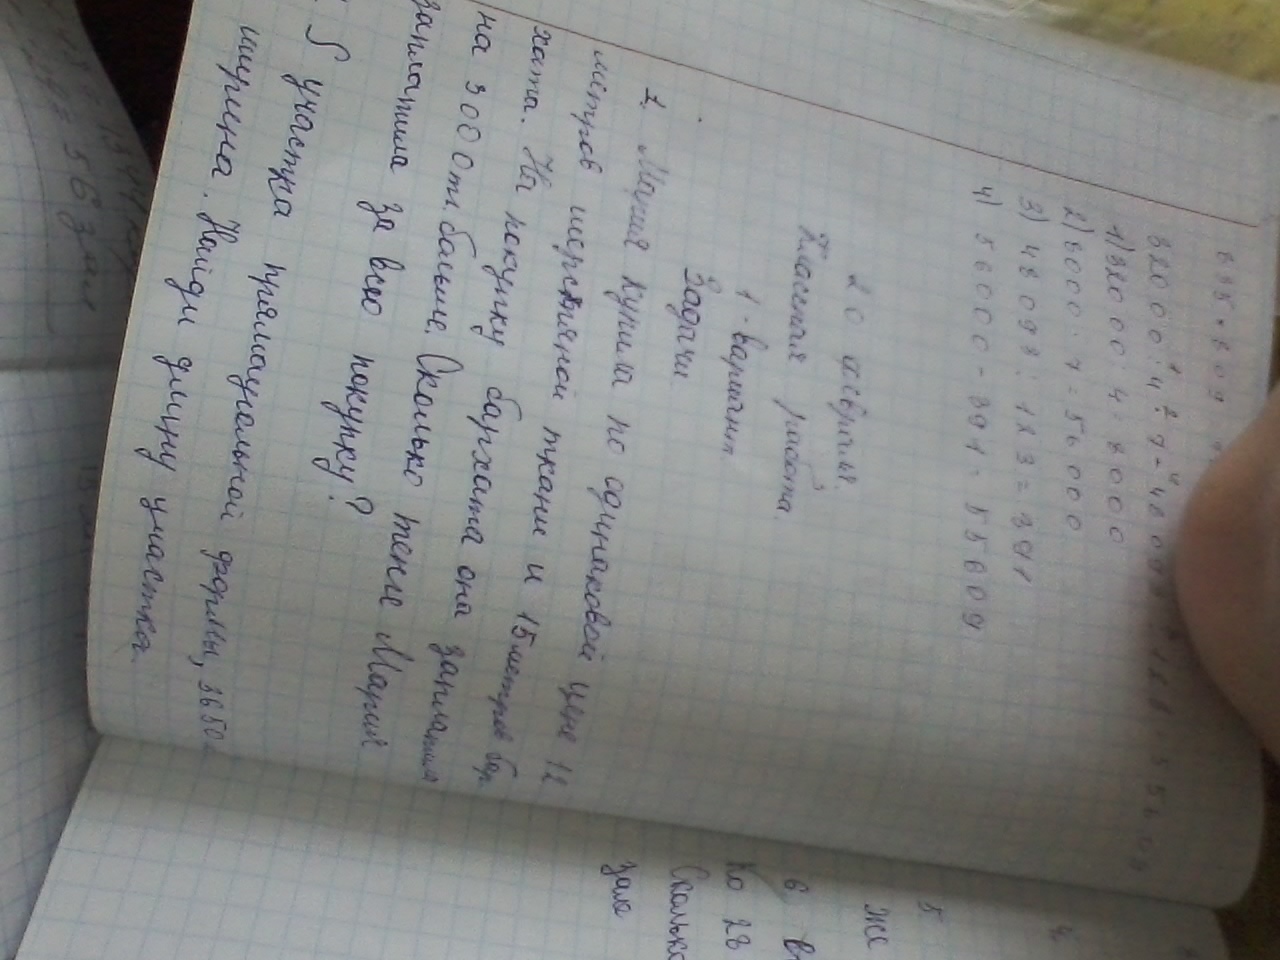 32000:4·7-48093:123=55609
1) 32000:4=8000
2) 8000·7=56000
3) 48093:123=391
4) 56000-391=55609
20 февраля.
Классная работа.
1-вариант.
Задачи.
1. Мария купила по одинаковой цене 12
метров шерстяной ткани и 15 метров бар
хата. На покупку бархата она заплатила
на 3000тг больше. Сколько тенге Мария
заплатила за всю покупку?
S участка прямоугольной формы, 3650
ширина. Найди длину участка.
5
же
6
Ко 28
Сколько
зале